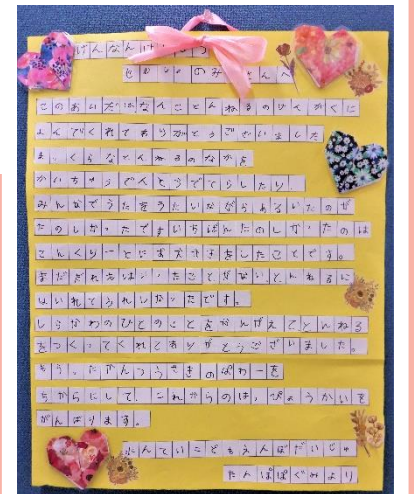 のみなさんへ
このあいだはなんことんねるのけんがくに
よんでくれてありがとうございました
まっくらなとんねるのなかを
かいちゅうでんとうでてらしたり、
みんなでうたをうたいながらあるいたのが
たのしかったです。いちばんたのしかったのは
こんくりーとにおえかきをしたことです。
まだだれもはいったことがないとんねるに
はいれてうれしかったです。
しらかわのひとのことをかんがえてとんねる
をつくってくれてありがとうございました。
もらった
ぱわーを
ちからにして、これからのはっぴょうかいを
がんばります。
こどもえん
たんぽぽぐみより